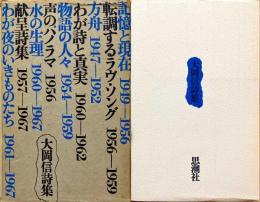 記憶と現在 1949–1956
転調するラヴ・ソング 1956–1959
方舟 1947–1952
わが詩と真実 1960–1962
物語の人々 1954–1959
声のパノラマ 1956
水の生理 1960–1967
献呈詩集 1957–1967
わが夜のいきものたち 1961–1967
大岡信詩集
大岡信詩集
思潮社